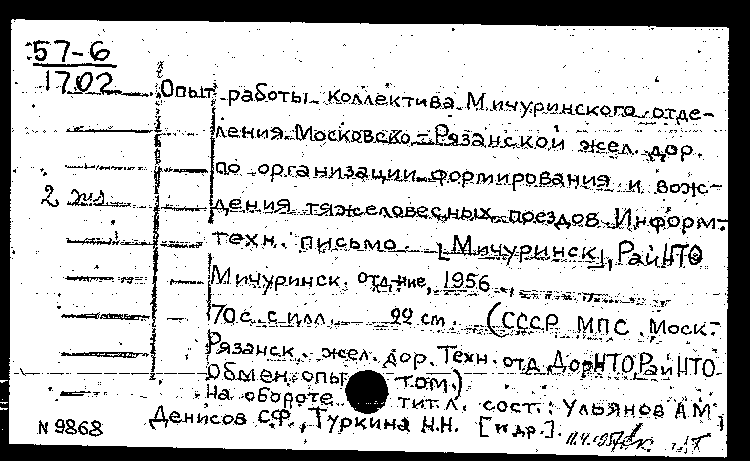 57-6
1702
Опыт работы коллектива Мичуринского отде-
ления Московско-Рязанской жел. дор.
по организации формирования и вож-
2 экз
дения тяжеловесных поездов. Информ.-
техн. письмо. [Мичуринск], РайНТО
Мичуринск. отд-ние, 1956.
70 с. с илл. 22 см. (СССР МПС. Моск.-
Рязанск. жел. дор. Техн. отд. ДорНТО РайНТО
Обмен опы том.)
На обороте тит. л. сост.: Ульянов А М
Денисов С.Ф., Туркина Н.Н. [и др.].
N 9868